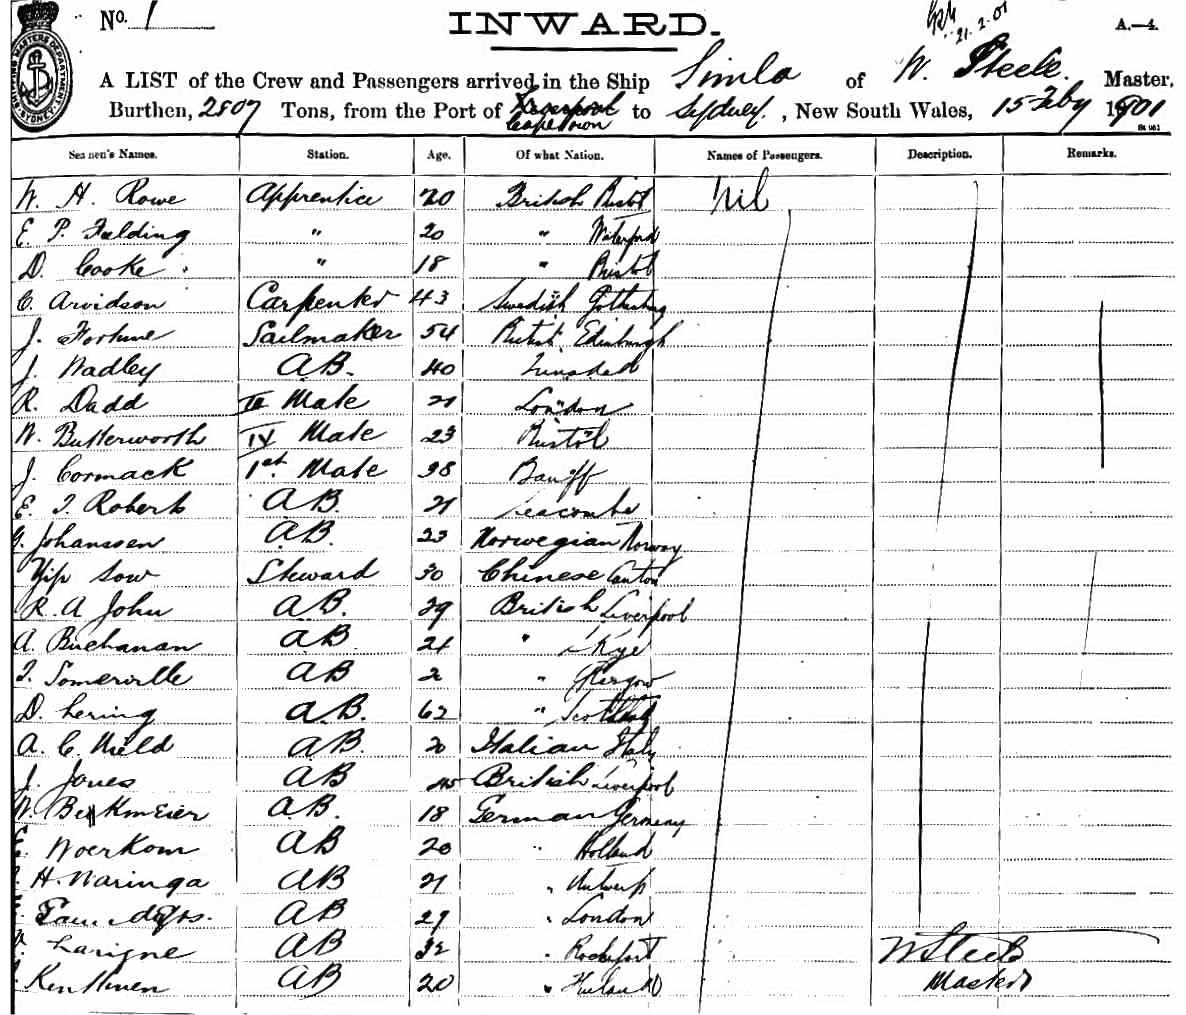 No. 1 INWARD. A.—4.
21.2.01
A LIST of the Crew and Passengers arrived in the Ship Simla of W. Steele. Master,
Burthen, 2807 Tons, from the Port of Liverpool Capetown to Sydney, New South Wales, 15 Feby 1901
Seamen's Names. Station. Age. Of what Nation. Names of Passengers. Description. Remarks.
W. H. Rowe Apprentice 20 British Bristol Nil
E. P. Fielding " 20 " Waterford
D. Cooke " 18 " Bristol
C. Arvidson Carpenter 43 Swedish Gothenburg
J. Fortune Sailmaker 54 British Edinburgh
J. Wadley A.B. 40 Trinidad
R. Dadd Mate 21 London
W. Butterworth IV Mate 23 Bristol
J. Cormack 1st Mate 38 Banff
E. J. Roberts A.B. 21 Seacombe
G. Johanssen A.B. 23 Norwegian Norway
Yip Sow Steward 30 Chinese Canton
R. A John A.B. 29 British Liverpool
A. Buchanan A.B. 21 " Skye
J. Somerville AB 2 " Glasgow
D. Lering A.B. 62 " Scotland
A. C. A.B. 20 Italian Italy
J. Jones AB 45 British Liverpool
W. Beckmeier A.B. 18 German Germany
Woerkom AB 20 " Holland
H. Waringa AB 21 " Antwerp
AB 29 " London
Larigne AB 32 " Rochefort W Steele
AB 20 " Master